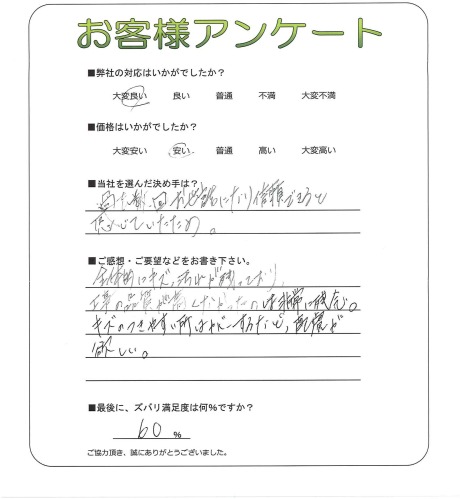 お客様アンケート
■弊社の対応はいかがでしたか？
大変良い 良い 普通 不満 大変不満
■価格はいかがでしたか？
大変安い 安い 普通 高い 大変高い
■当社を選んだ決め手は？
になり信頼できると
いたため。
■ご感想・ご要望などをお書き下さい。
全体的にキズ、汚れが残っており、
工事の品質が高くなかったのは非常に残念。
キズのつきやすい所はカバーするなど、配慮が
欲しい。
■最後に、ズバリ満足度は何%ですか？
60 %
ご協力頂き、誠にありがとうございました。